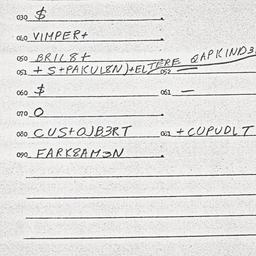 030 $
040 VIMPER+
050 BRIL8+
051 + S+PAKUL8N)+ELTERE QAPKIND3
052 —
060 $ 061 —
070 O
080 CUS+OJB3RT 081 + CUPUDLT
090 FARK8AM3N